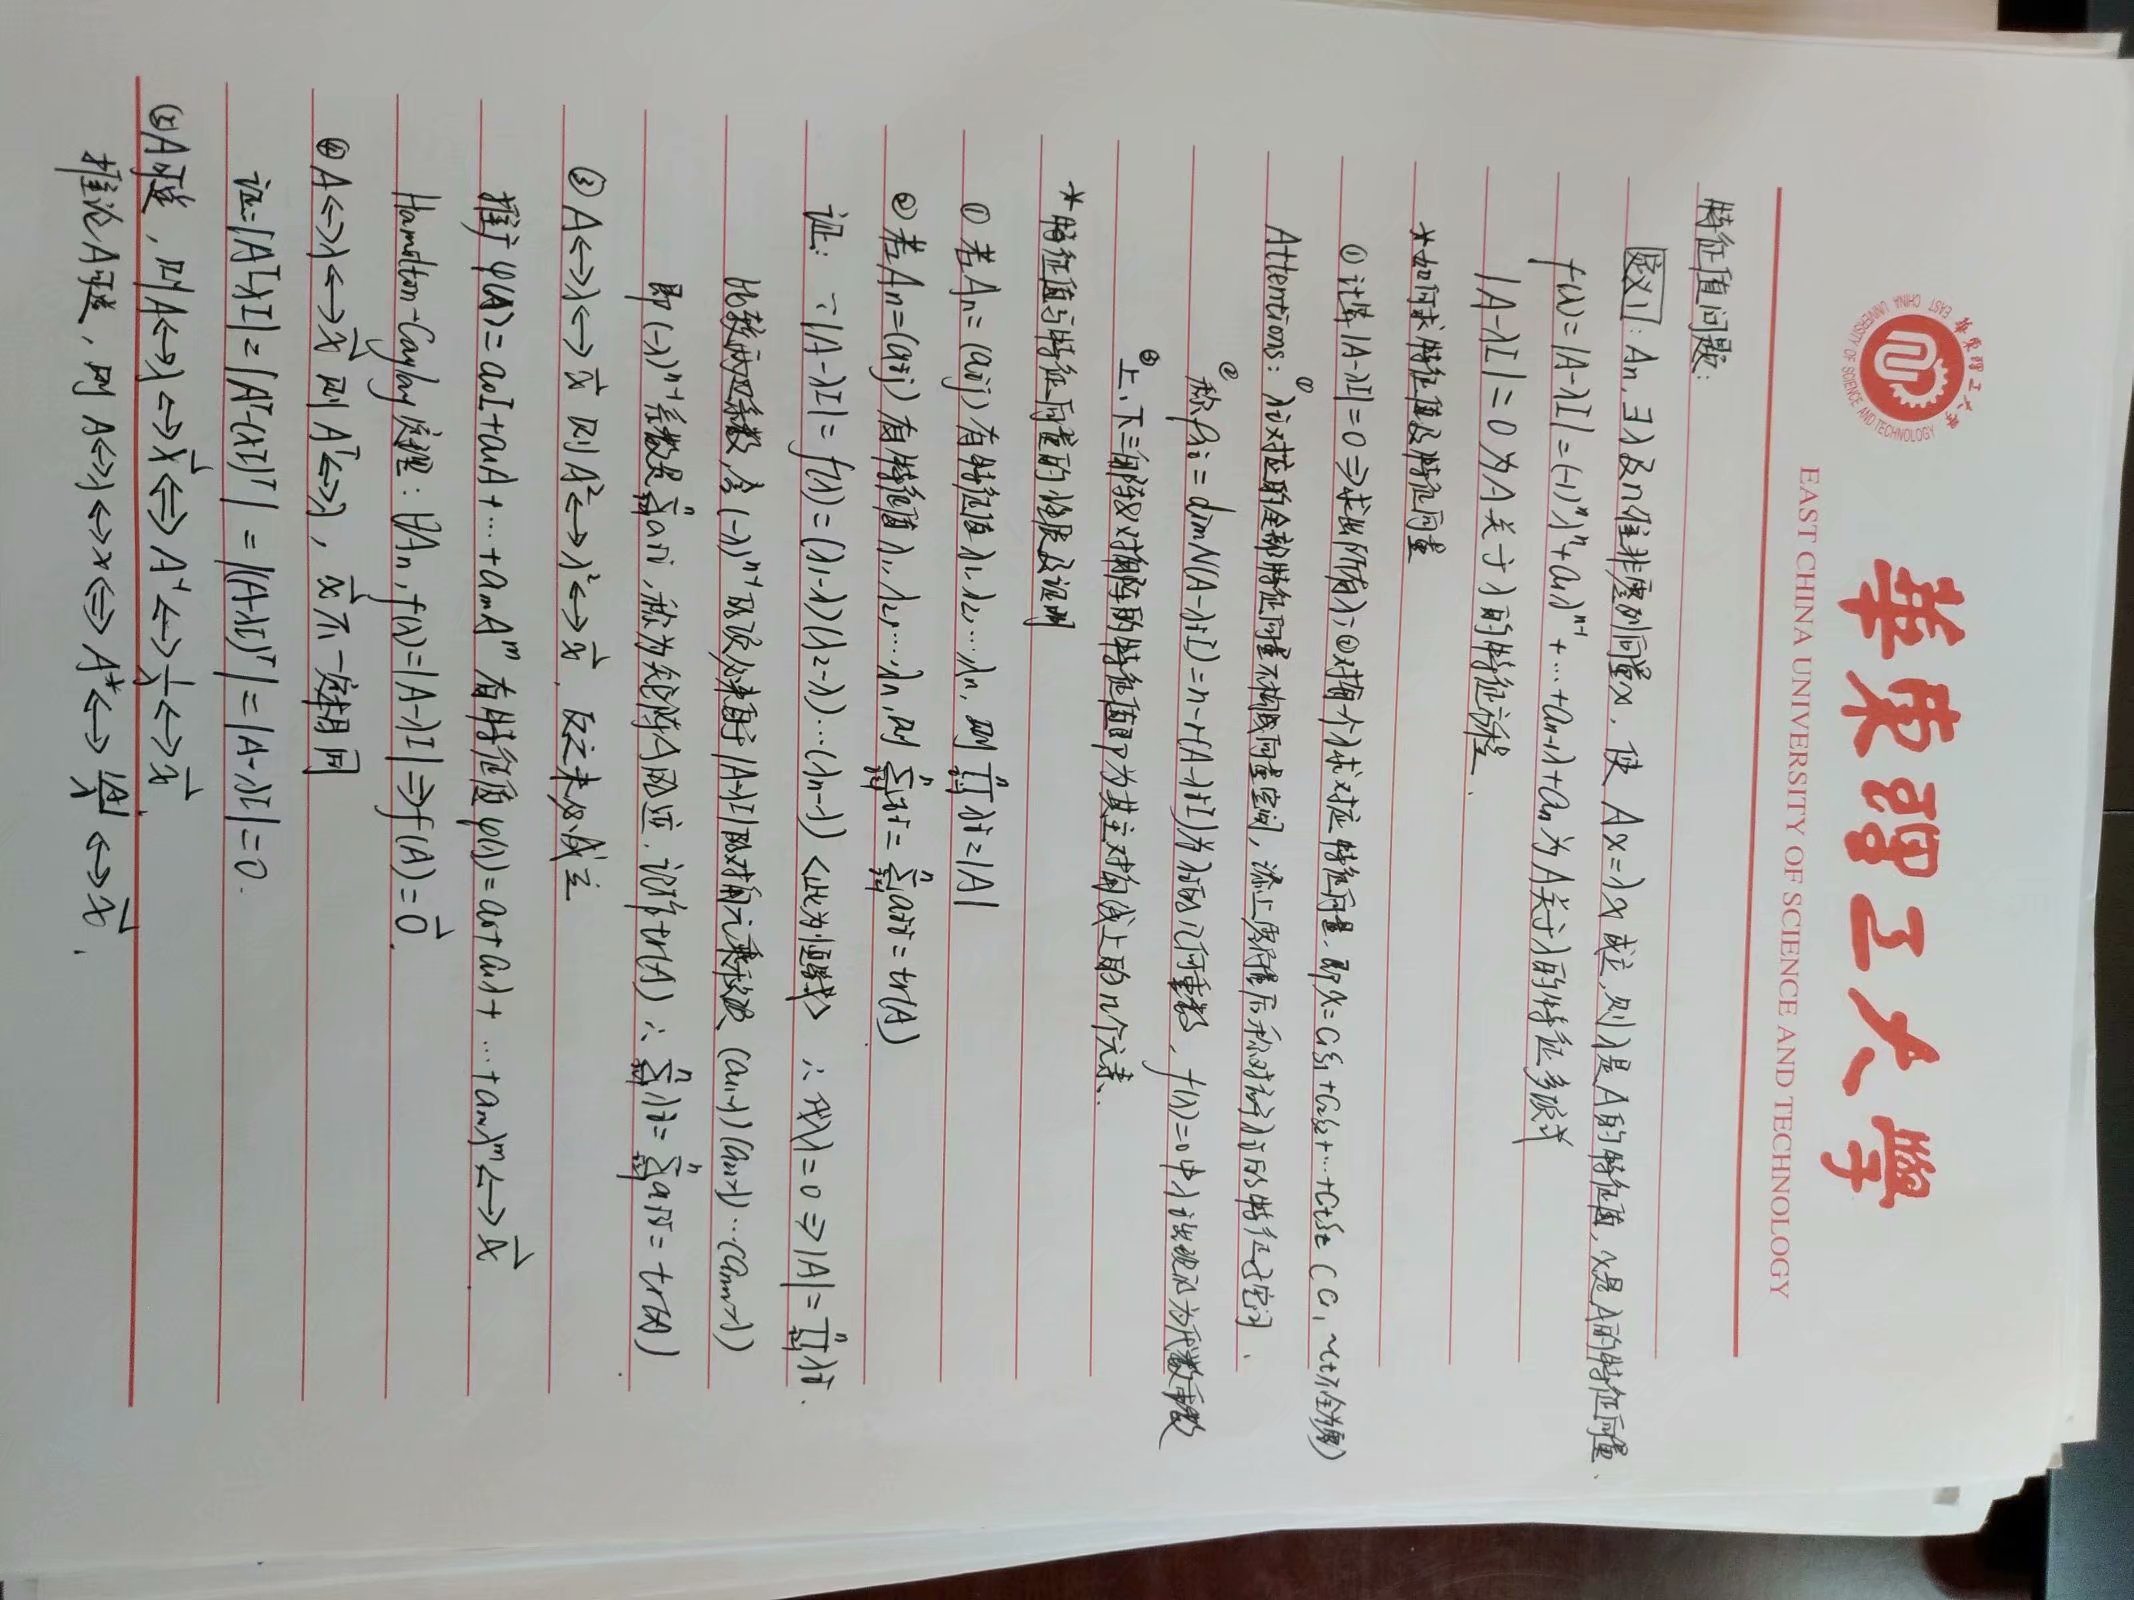 華東理工大學
EAST CHINA UNIVERSITY OF SCIENCE AND TECHNOLOGY
特征值问题:
定义1: An, ∃λ及n维非零列向量x, 使 Ax=λx 成立, 则λ是A的特征值, x是A的特征向量.
f(λ)=|A-λI|=(-1)ⁿλⁿ+a₁λⁿ⁻¹+…+aₙ₋₁λ+aₙ为A关于λ的特征多项式
|A-λI|=0为A关于λ的特征方程.
*如何求特征值及特征向量
①计算|A-λI|=0⇒求出所有λ; ②对每个λ求对应特征向量, 即x=C₁ξ₁+C₂ξ₂+…+Ctξt (C₁~Ct不全为零)
Attentions: ①λi对应的全部特征向量不构成向量空间, 添上零向量后称对应于λi的特征子空间.
②称ρi=dimN(A-λiI)=n-r(A-λiI)为λi的几何重数, f(λ)=0中λi出现的为代数重数
③上、下三角阵及对角阵的特征值即为其主对角线上的n个元素.
*特征值与特征向量的性质及证明
①若An=(aij)有特征值λ₁,λ₂,…λn, 则∏ⁿᵢ₌₁λi=|A|
②若An=(aij)有特征值λ₁,λ₂,…λn, 则∑ⁿᵢ₌₁λi=∑ⁿᵢ₌₁aii=tr(A)
证: ∵|A-λI|=f(λ)=(λ₁-λ)(λ₂-λ)…(λn-λ) <此为恒等式> ∴代λ=0⇒|A|=∏ⁿᵢ₌₁λi.
比较两边系数, 含(-λ)ⁿ⁻¹的项必来自于|A-λI|的对角元乘积 (a₁₁-λ)(a₂₂-λ)…(ann-λ)
即(-λ)ⁿ⁻¹系数是∑ⁿᵢ₌₁aii, 称为矩阵A的迹, 记作tr(A) ∴∑ⁿᵢ₌₁λi=∑ⁿᵢ₌₁aii=tr(A)
③A↔λ↔x⃗ 则A²↔λ²↔x⃗, 反之未必成立
推广φ(A)=a₀I+a₁A+…+amAᵐ有特征值φ(λ)=a₀+a₁λ+…+amλᵐ↔x⃗.
Hamilton-Cayley定理: ∀An, f(λ)=|A-λI|⇒f(A)=0⃗.
④A↔λ↔x⃗ 则Aᵀ↔λ, x⃗不一定相同
证: |Aᵀ-λI|=|Aᵀ-(λI)ᵀ|=|(A-λI)ᵀ|=|A-λI|=0.
⑤A可逆, 则A↔λ↔x⃗⇔A⁻¹↔1/λ↔x⃗.
推论A可逆, 则A↔λ↔x⇔A*↔|A|/λ↔x⃗.